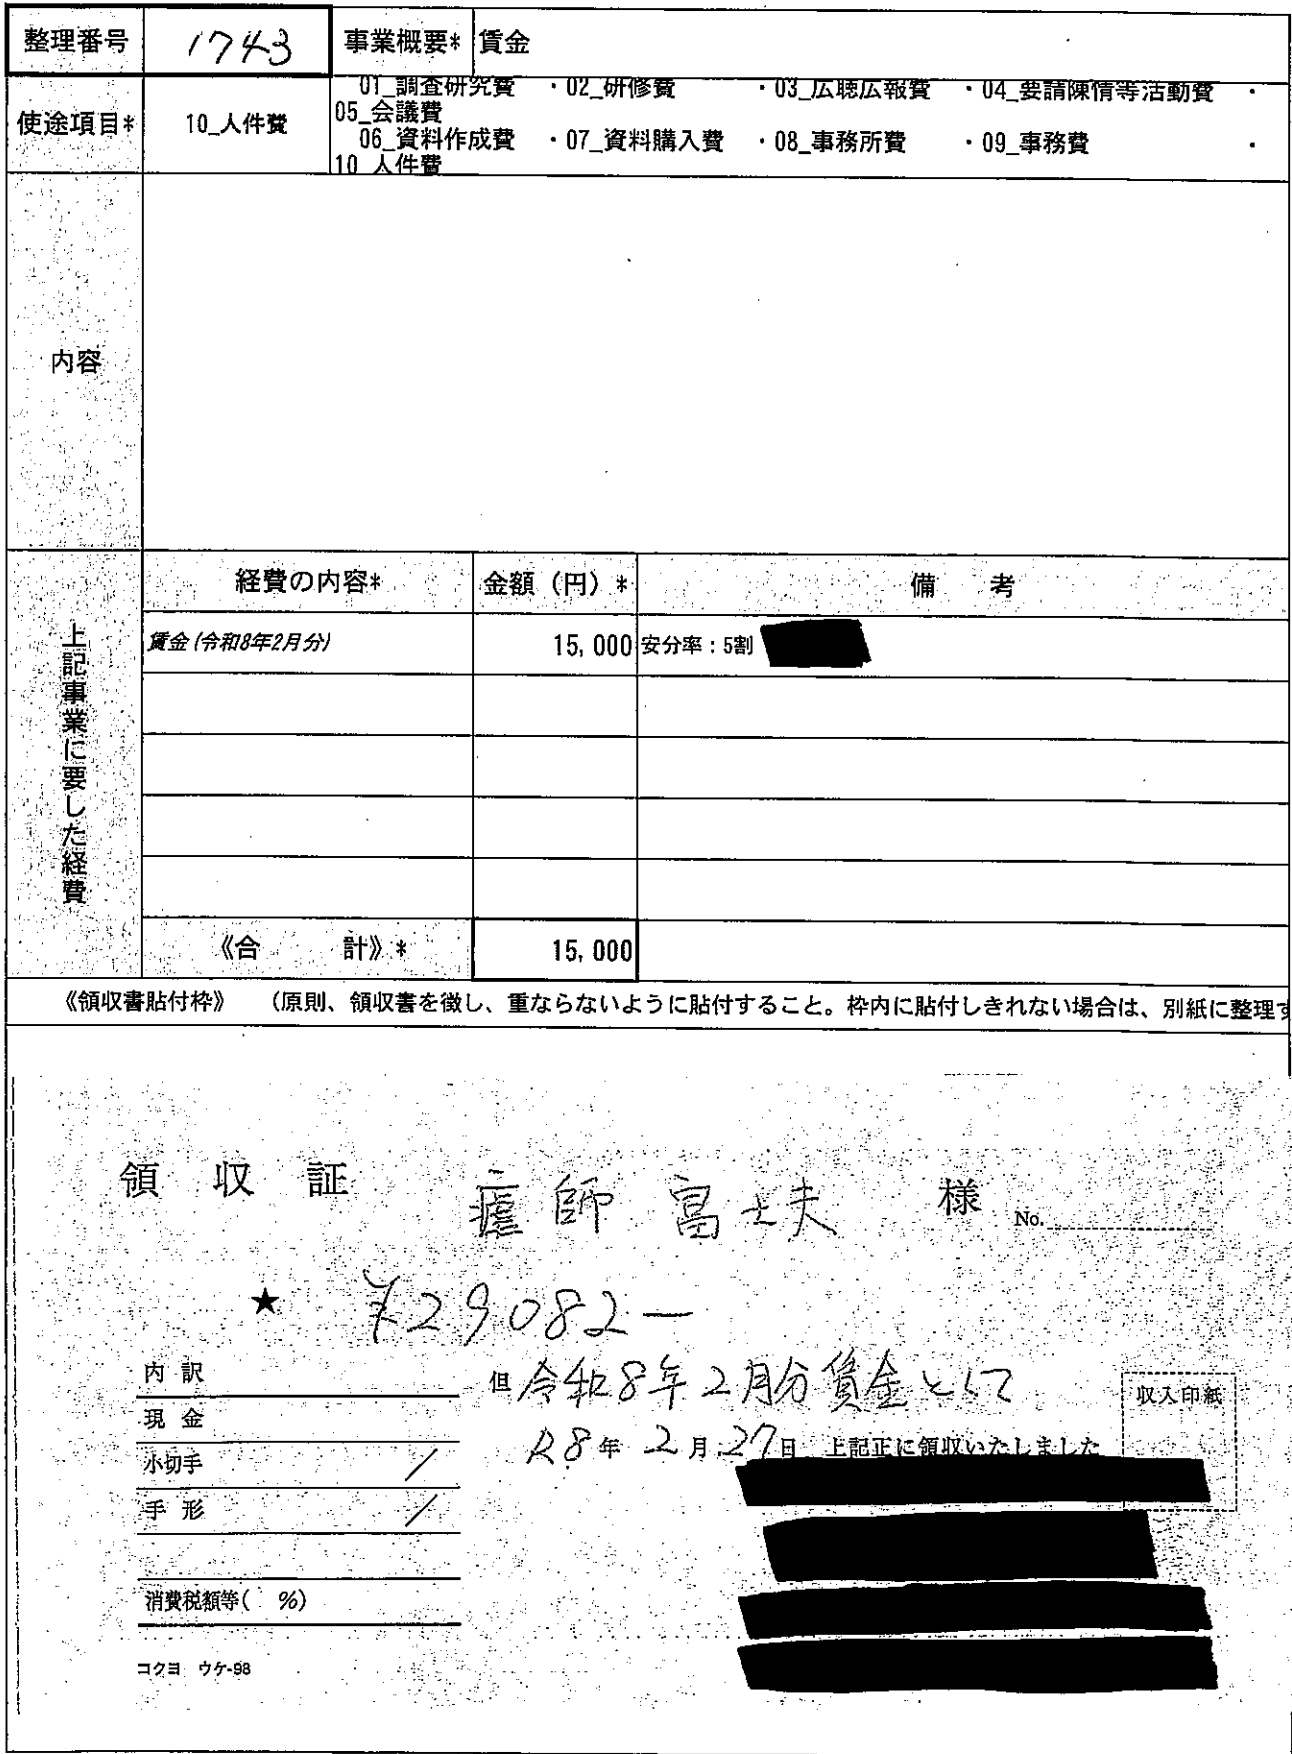 整理番号 1743 事業概要* 賃金
使途項目* 10_人件費
01_調査研究費 ・02_研修費 ・03_広聴広報費 ・04_要請陳情等活動費 ・
05_会議費
06_資料作成費 ・07_資料購入費 ・08_事務所費 ・09_事務費 ・
10_人件費
内容
上記事業に要した経費
経費の内容* 金額（円）* 備 考
賃金(令和8年2月分) 15,000 安分率：5割
《合 計》* 15,000
《領収書貼付枠》 （原則、領収書を徴し、重ならないように貼付すること。枠内に貼付しきれない場合は、別紙に整理す
領 収 証 師 富士夫 様 No.
★ ¥29082-
内 訳 但 令和8年2月分賃金として
現 金 収入印紙
R8年 2月27日 上記正に領収いたしました
小切手 /
手 形 /
消費税額等( %)
コクヨ ウケ-98